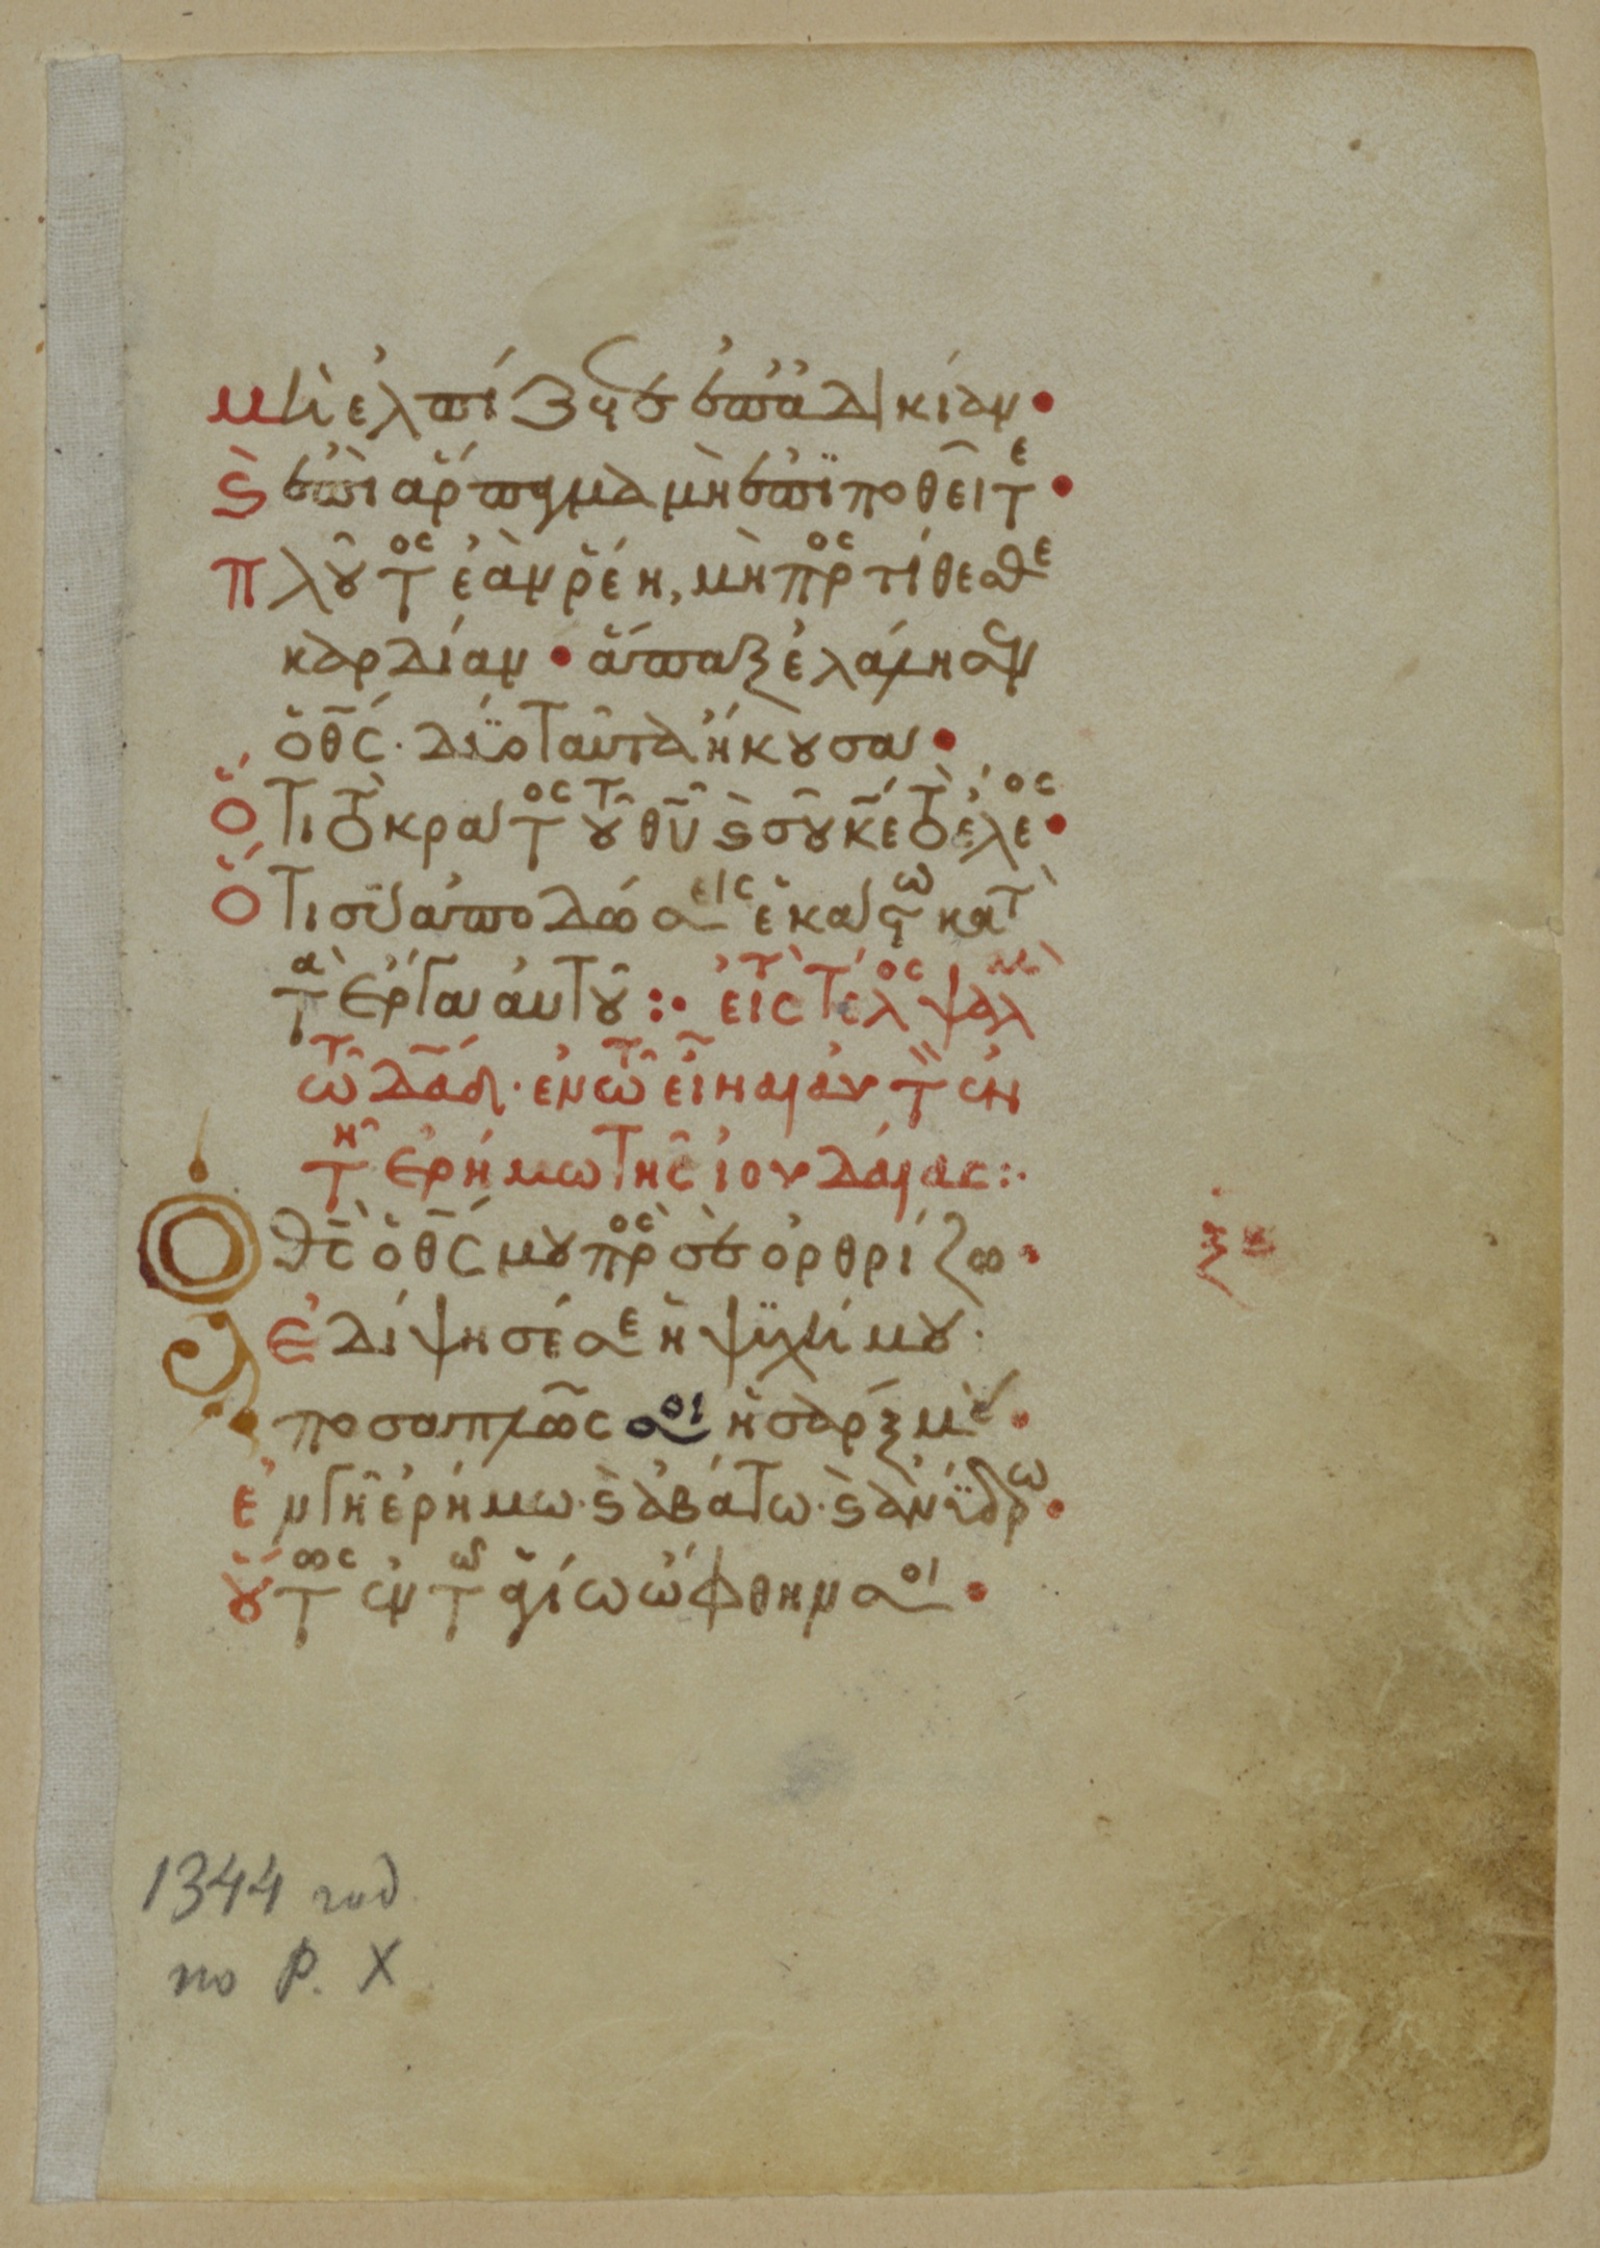 μὴ ἐλπίζετε ἐπ' ἀδικίαν
ϛ ἐπὶ ἅρπαγμα μὴ ἐπιποθεῖτε
πλοῦτος ἐὰν ῥέῃ, μὴ προστίθεσθε
καρδίαν · ἅπαξ ἐλάλησεν
ὁ θς · δύο ταῦτα ἤκουσα
ὅτι τὸ κράτος τοῦ θυ ϛ σοῦ κε τὸ ἔλεος
ὅτι σὺ ἀποδώσεις ἑκάστῳ κατὰ
τὰ ἔργα αὐτοῦ :· εἰς τὸ τέλος ψαλμὸς
τῷ δαδ · ἐν τῷ εἶναι αὐτὸν ἐν
τῇ ἐρήμω τῆς ἰουδαίας :·
Ὁ θς ὁ θς μου πρὸς σὲ ὀρθρίζω
ἐδίψησέ σε ἡ ψυχή μου ·
ποσαπλῶς σοι ἡ σάρξ μου
ἐν γῆ ἐρήμω · ϛ ἀβάτω · ϛ ἀνύδρω
οὕτως ἐν τῶ ἁγίω ὤφθην σοι
ξβ
1344 год
по Р. Х